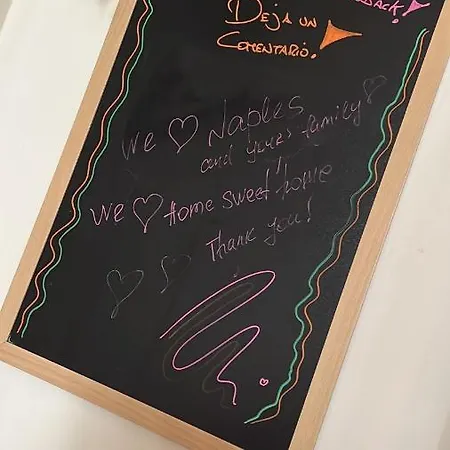 DEJA UN
COMENTARIO!
We ♡ Naples
and your family ♡
We ♡ Home sweet home
Thank you!